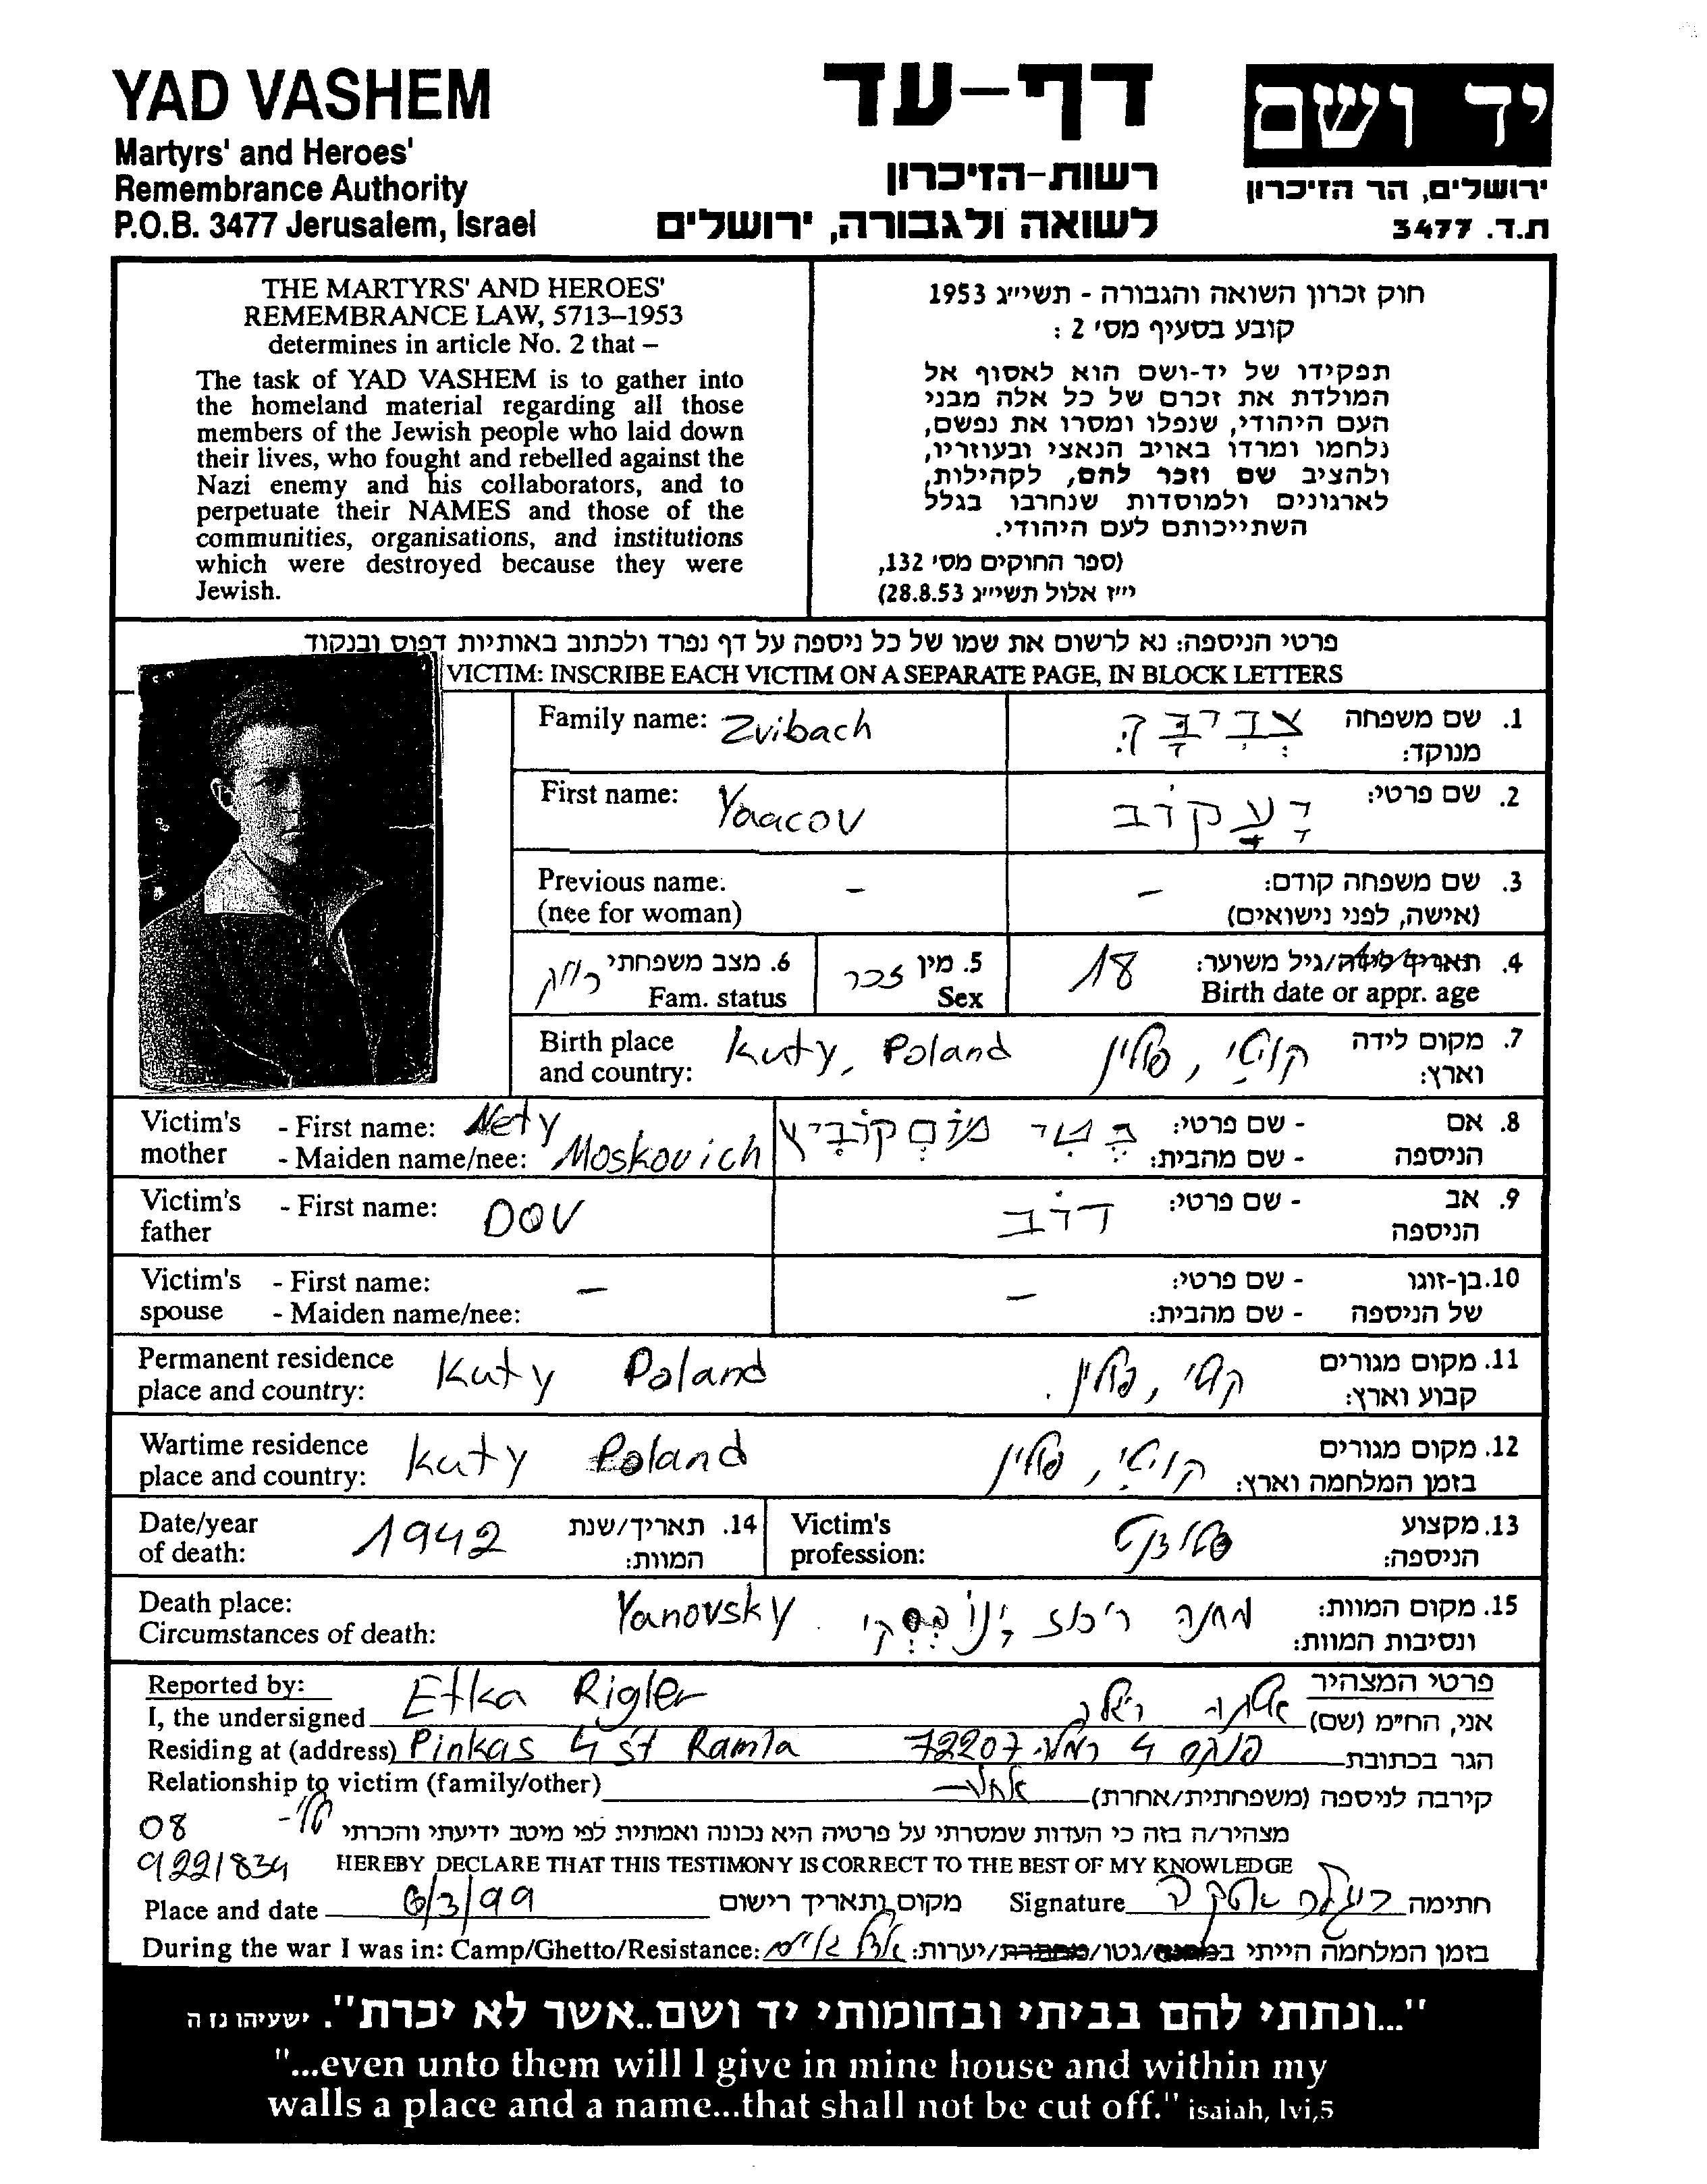 YAD VASHEM
Martyrs' and Heroes'
Remembrance Authority
P.O.B. 3477 Jerusalem, Israel
דף-עד
רשות-הזיכרון
לשואה ולגבורה, ירושלים
יד ושם
ירושלים, הר הזיכרון
ת.ד. 3477
THE MARTYRS' AND HEROES'
REMEMBRANCE LAW, 5713–1953
determines in article No. 2 that –
The task of YAD VASHEM is to gather into
the homeland material regarding all those
members of the Jewish people who laid down
their lives, who fought and rebelled against the
Nazi enemy and his collaborators, and to
perpetuate their NAMES and those of the
communities, organisations, and institutions
which were destroyed because they were
Jewish.
חוק זכרון השואה והגבורה - תשי״ג 1953
קובע בסעיף מס׳ 2 :
תפקידו של יד-ושם הוא לאסוף אל
המולדת את זכרם של כל אלה מבני
העם היהודי, שנפלו ומסרו את נפשם,
נלחמו ומרדו באויב הנאצי ובעוזריו,
ולהציב שם וזכר להם, לקהילות,
לארגונים ולמוסדות שנחרבו בגלל
השתייכותם לעם היהודי.
(ספר החוקים מס׳ 132,
י״ז אלול תשי״ג 28.8.53)
פרטי הניספה: נא לרשום את שמו של כל ניספה על דף נפרד ולכתוב באותיות דפוס ובנקוד
VICTIM: INSCRIBE EACH VICTIM ON A SEPARATE PAGE, IN BLOCK LETTERS
Family name: Zvibach צְבִיבָּק 1. שם משפחה
מנוקד:
First name: Yaacov יַעֲקוֹב 2. שם פרטי:
Previous name: – – 3. שם משפחה קודם:
(nee for woman) (אישה, לפני נישואים)
6. מצב משפחתי רווק 5. מין זכר 18 4. תאריך לידה/גיל משוער:
Fam. status Sex Birth date or appr. age
Birth place Kuty, Poland קוטי, פולין 7. מקום לידה
and country: וארץ:
Victim's - First name: Nety - שם פרטי: 8. אם
mother - Maiden name/nee: Moskovich מוֹסְקוֹבִיץ - שם מהבית: הניספה
Victim's - First name: DOV דוֹב - שם פרטי: 9. אב
father הניספה
Victim's - First name: – – - שם פרטי: 10. בן-זוגו
spouse - Maiden name/nee: - שם מהבית: של הניספה
Permanent residence Kuty Poland קוטי, פולין. 11. מקום מגורים
place and country: קבוע וארץ:
Wartime residence Kuty Poland קוטי, פולין 12. מקום מגורים
place and country: בזמן המלחמה וארץ:
Date/year 1942 14. תאריך/שנת Victim's 13. מקצוע
of death: המוות: profession: הניספה:
Death place: Yanovsky מחנה ריכוז יָנוֹבְסְקִי 15. מקום המוות:
Circumstances of death: ונסיבות המוות:
Reported by: פרטי המצהיר
I, the undersigned Etka Rigler אטקה ריגלר אני, הח״מ (שם)
Residing at (address) Pinkas 4 st Ramla פנקס 4 רמלה 72207 הגר בכתובת
Relationship to victim (family/other) אחות קירבה לניספה (משפחתית/אחרת)
08 טל׳- מצהיר/ה בזה כי העדות שמסרתי על פרטיה היא נכונה ואמתית לפי מיטב ידיעתי והכרתי
9221834 HEREBY DECLARE THAT THIS TESTIMONY IS CORRECT TO THE BEST OF MY KNOWLEDGE
Place and date 6/3/99 מקום ותאריך רישום Signature חתימה
During the war I was in: Camp/Ghetto/Resistance: בזמן המלחמה הייתי במחנה/גטו/מחתרת/יערות:
"...ונתתי להם בביתי ובחומותי יד ושם..אשר לא יכרת". ישעיהו נו ה
"...even unto them will I give in mine house and within my
walls a place and a name...that shall not be cut off." isaiah, lvi,5